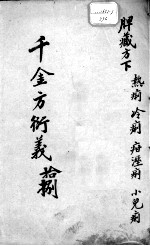 脾藏方下
熱痢 冷痢 疳湿痢 小兒痢
千金方衍義 拾捌